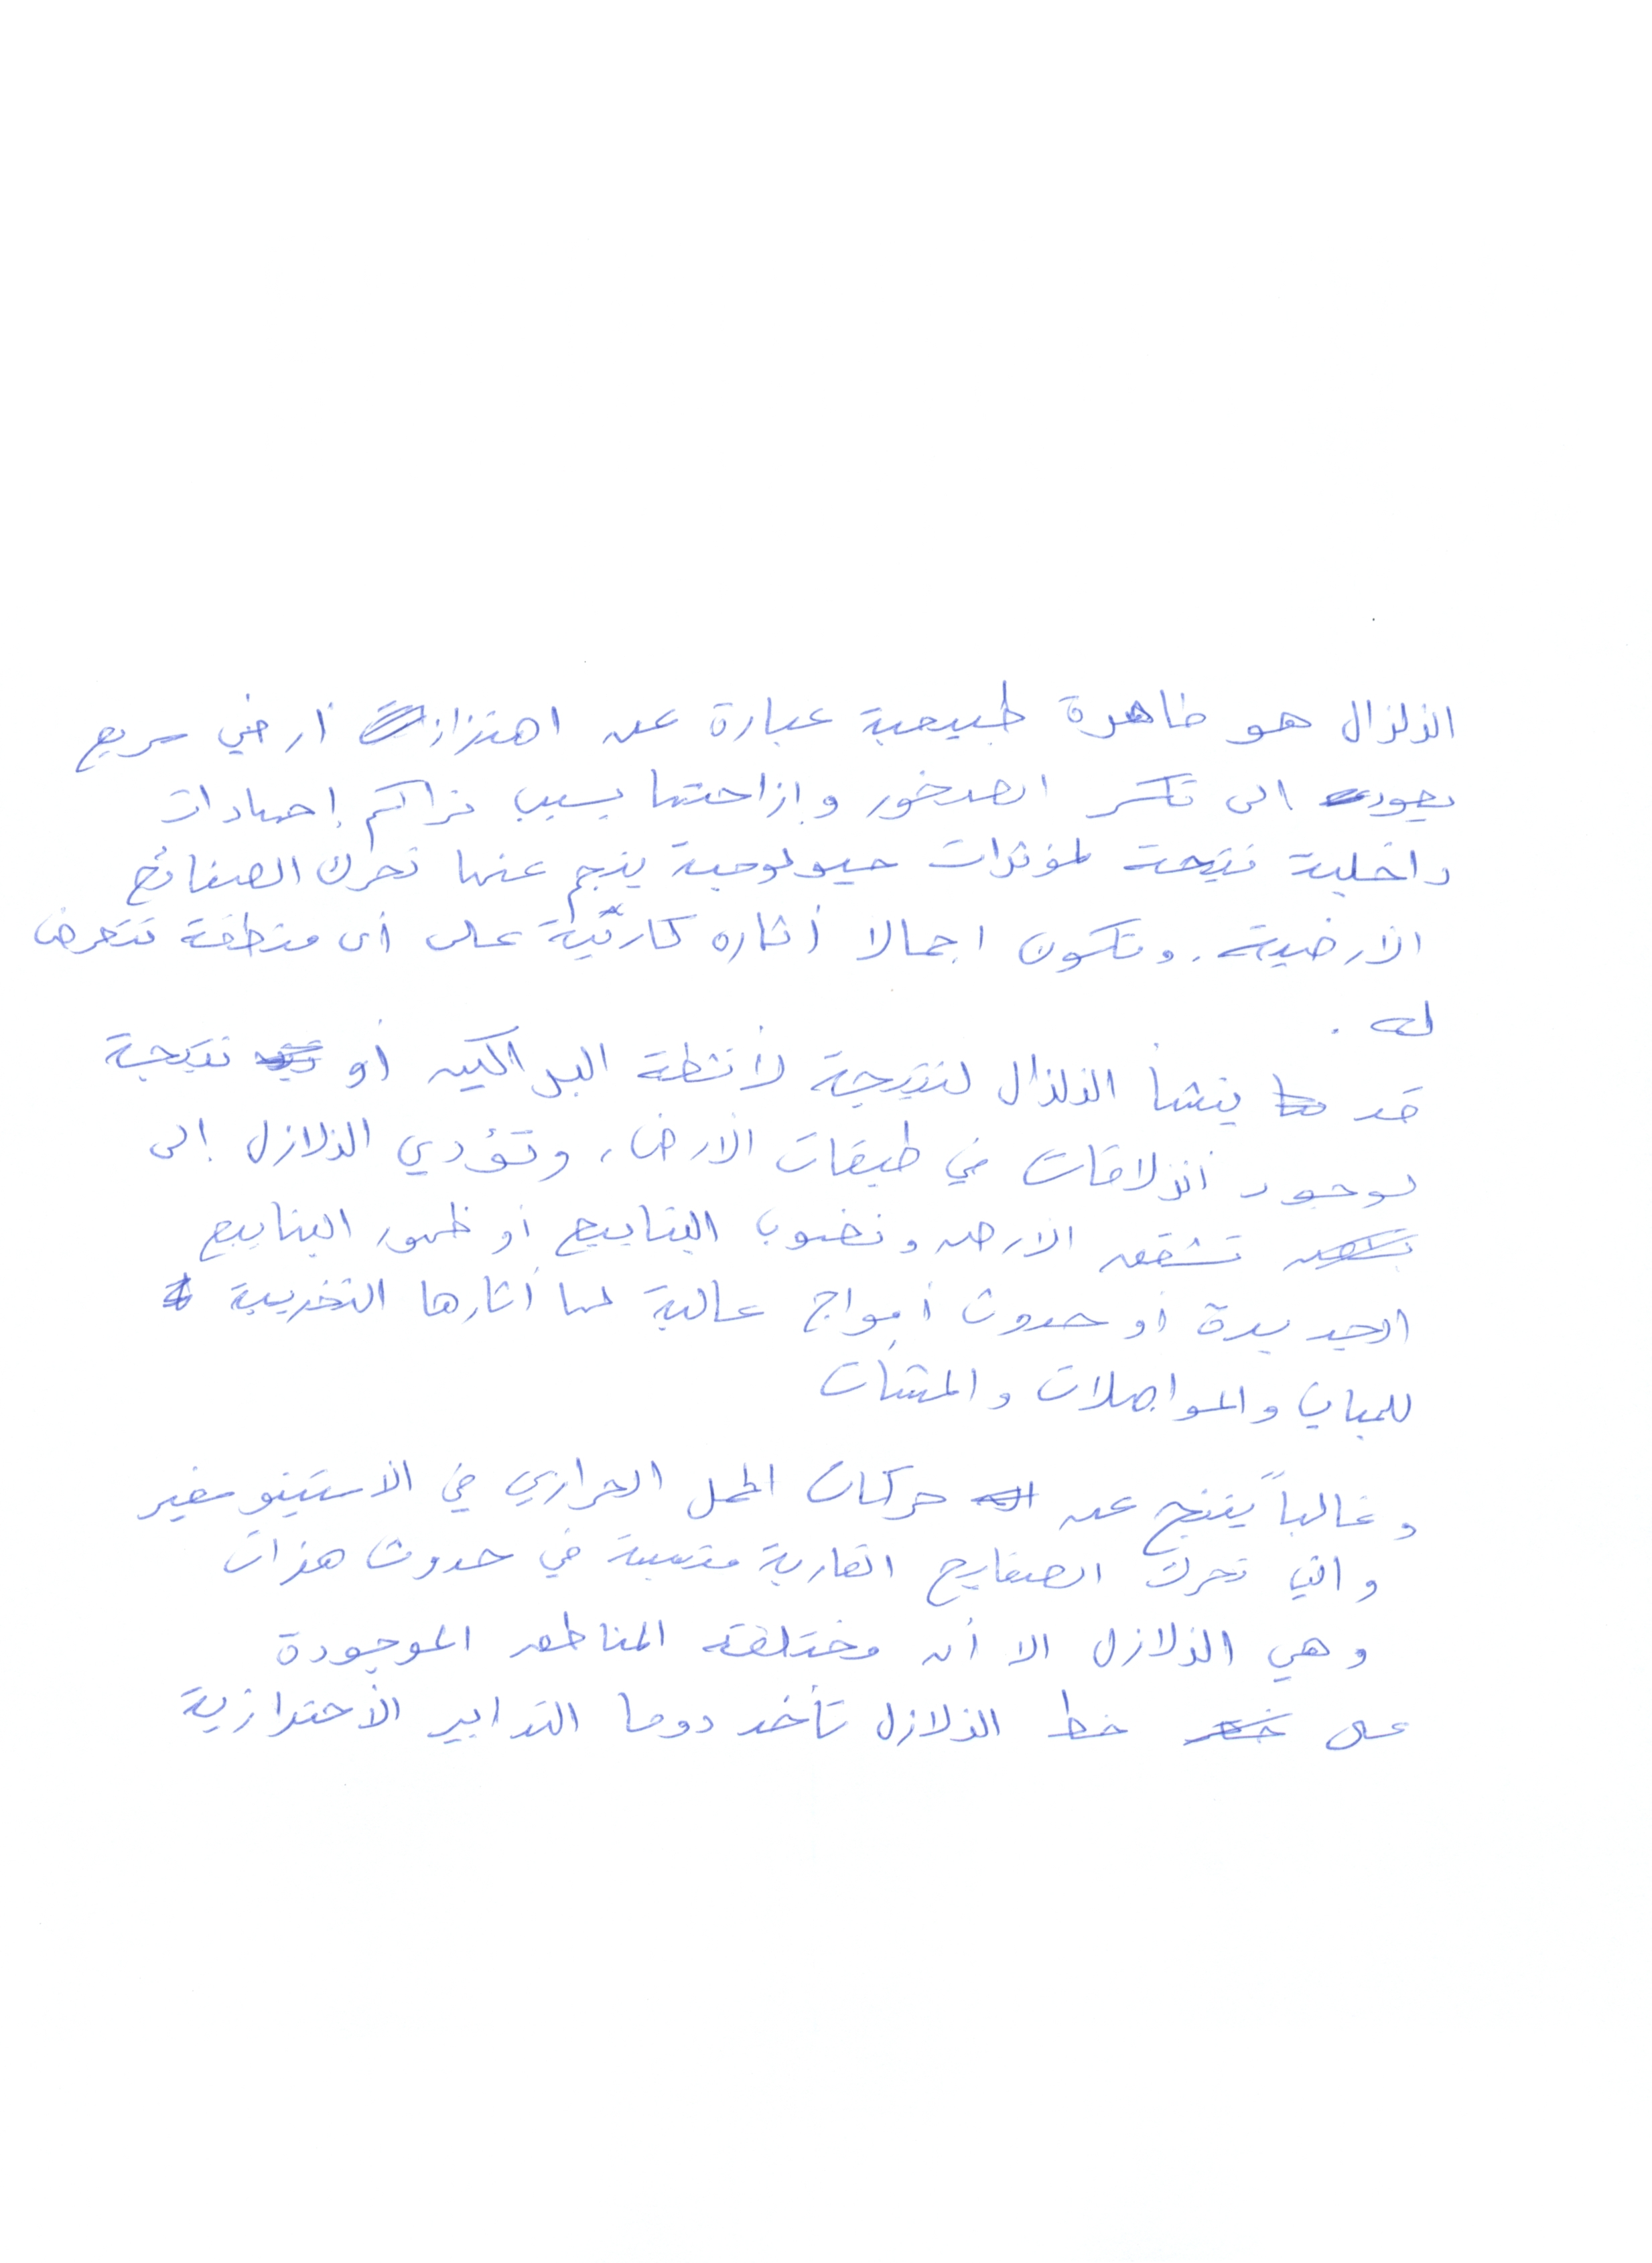 الزلزال هو ظاهرة طبيعية عبارة عن اهتزاز أرضي سريع
يعود الى تكسر الصخور وإزاحتها بسبب تراكم إجهادات
داخلية نتيجة لمؤثرات جيولوجية ينجم عنها تحرك الصفائح
الأرضية. وتكون اجمالا أثاره كارثية على أى منطقة تتعرض
له .
قد ينشأ الزلزال لنتيجة لأنشطة البراكين أو نتيجة
لوجود أنزلاقات في طبقات الأرض، وتؤدي الزلازل إلى
تشقق الارض ونضوب الينابيع أو ظهور الينابيع
الجديدة أو حدوث أمواج عالية لها أثارها التخريبية
للمباني والمواصلات والمنشأت
وغالباً ينتج عن حركات الحمل الحراري في الأستينوسفير
والتي تحرك الصفايح القارية متسببة في حدوث هزات
وهي الزلازل الا أن مختلفة المناطق الموجودة
على خط الزلازل تأخد دوما التدابير الأحترازية